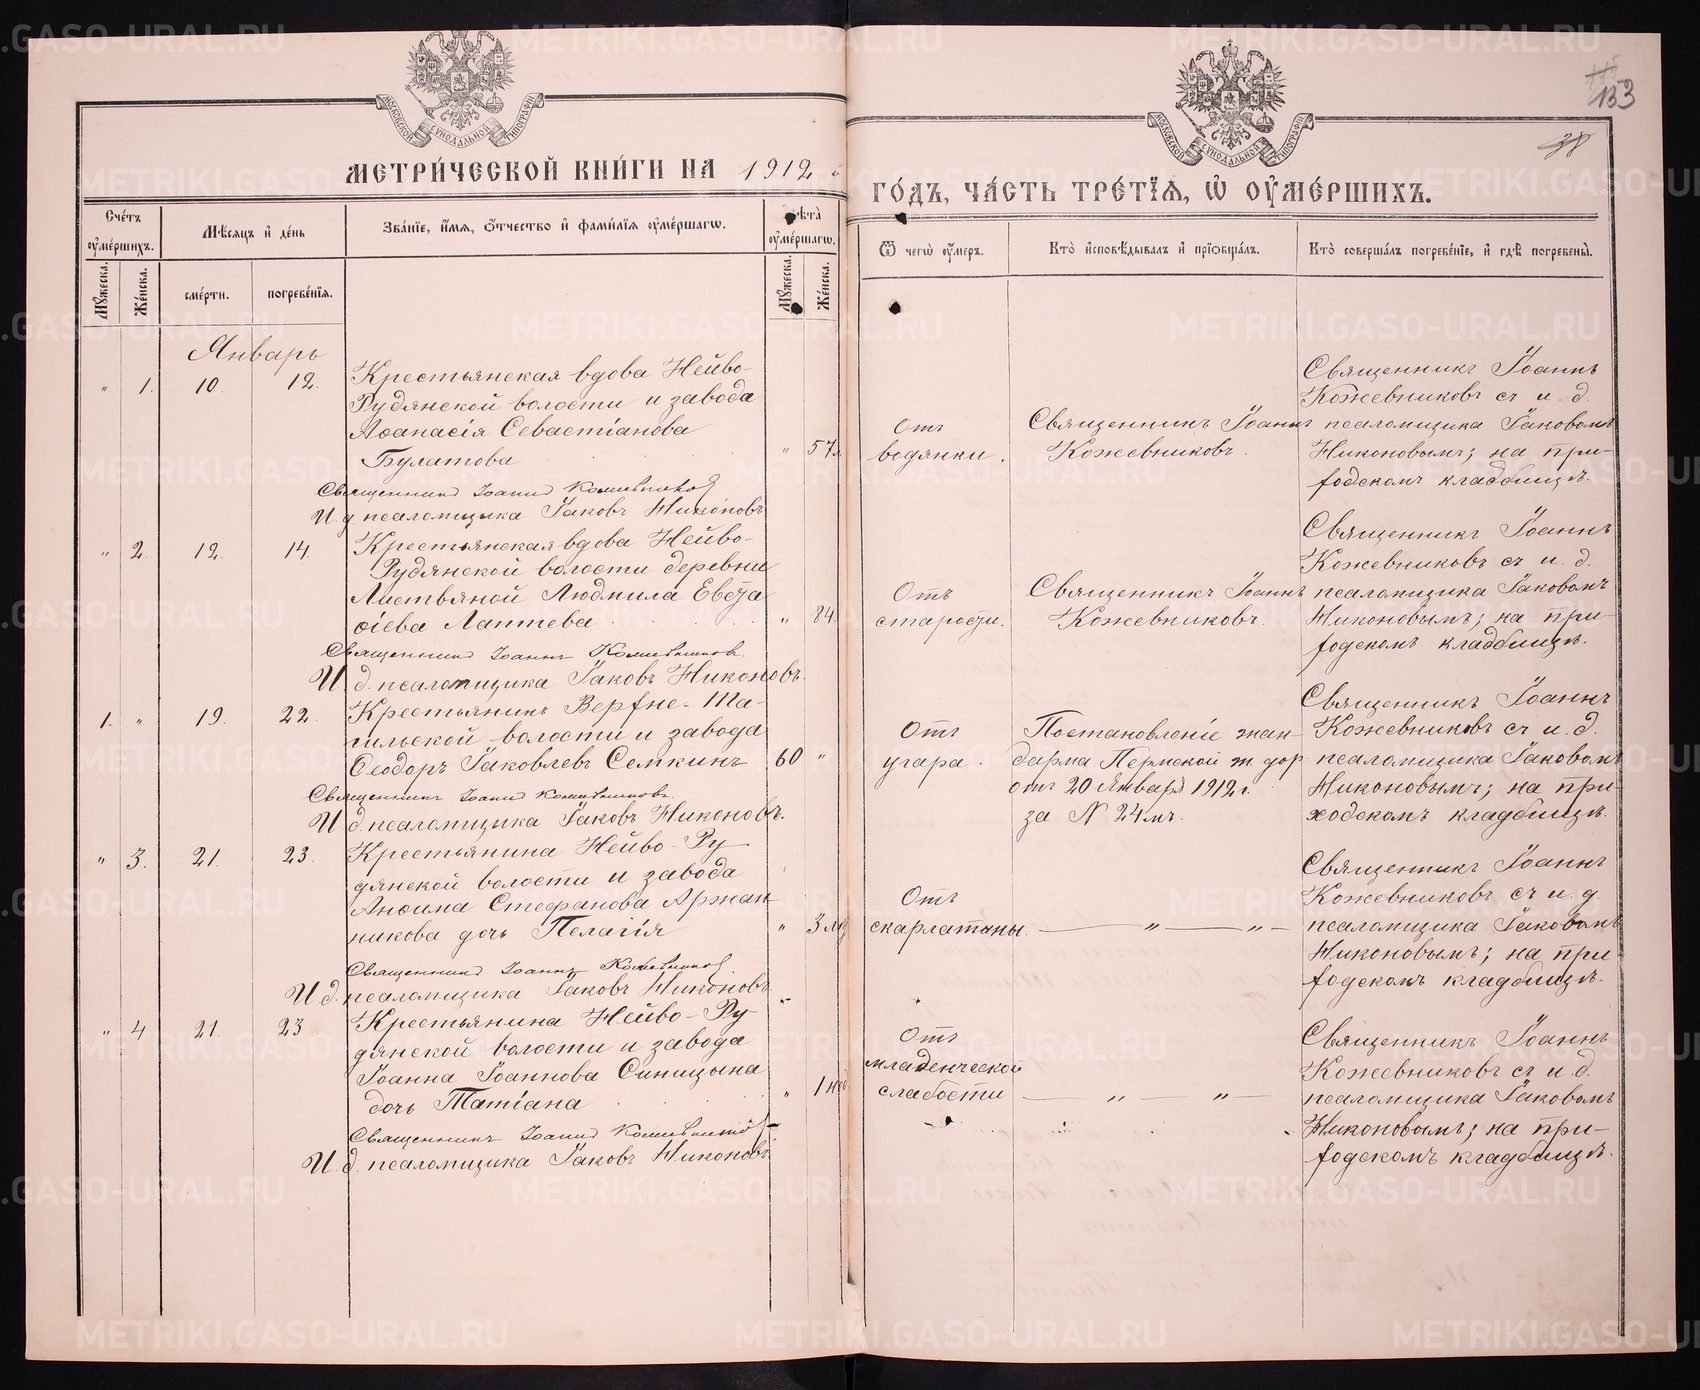 МЕТРИ́ЧЕСКОЙ КНИ́ГИ НА 1912
ГО́ДЪ, ЧА́СТЬ ТРЕ́ТЇѦ, Ѡ҆ ОУ҆МЕ́РШИХЪ.
153
38
МОСКОВСКОЙ СѴНОДАЛЬНОЙ ТИПОГРАФІИ
МОСКОВСКОЙ СѴНОДАЛЬНОЙ ТИПОГРАФІИ
Сче́тъ оу҆ме́ршихъ.
Мꙋ́жеска.
Же́нска.
Мѣ́сѧцъ и҆ де́нь
сме́рти.
погребе́нїѧ.
Зва́нїе, и҆́мѧ, ѻ҆́тчество и҆ фами́лїѧ оу҆ме́ршагѡ.
Лѣ́та̀ оу҆ме́ршагѡ.
Мꙋ́жеска.
Же́нска.
Ѿ чегѡ̀ оу҆́меръ.
Кто̀ и҆сповѣ́дывалъ и҆ прїѡбща́лъ.
Кто̀ соверша́лъ погребе́нїе, и҆ гдѣ̀ погребены̀.
Январь
" 1. 10. 12.
Крестьянская вдова Нейво-
Рудянской волости и завода
Аѳанасія Севастіанова
Булатова " 57
Отъ
водянки.
Священникъ Іоаннъ
Кожевниковъ.
Священникъ Іоаннъ
Кожевниковъ съ и. д.
псаломщика Іаковомъ
Никоновымъ; на при-
ходскомъ кладбищѣ.
Священникъ Іоаннъ Кожевниковъ
И. д. псаломщика Іаковъ Никоновъ
" 2. 12. 14.
Крестьянская вдова Нейво-
Рудянской волости деревни
Листвяной Людмила Евста
фіева Лаптева " 84.
Отъ
старости.
Священникъ Іоаннъ
Кожевниковъ.
Священникъ Іоаннъ
Кожевниковъ съ и. д.
псаломщика Іаковомъ
Никоновымъ; на при-
ходскомъ кладбищѣ.
Священникъ Іоаннъ Кожевниковъ
И. д. псаломщика Іаковъ Никоновъ.
1. " 19. 22.
Крестьянинъ Верхне-Та-
гильской волости и завода
Ѳеодоръ Іаковлевъ Семкинъ 60 "
Отъ
угара.
Постановленіе жан-
дарма Пермской ж. дор
отъ 20 Января 1912 г.
за N 24мъ.
Священникъ Іоаннъ
Кожевниковъ съ и. д.
псаломщика Іаковомъ
Никоновымъ; на при-
ходскомъ кладбищѣ.
Священникъ Іоаннъ Кожевниковъ
И. д. псаломщика Іаковъ Никоновъ.
" 3. 21. 23.
Крестьянина Нейво-Ру
дянской волости и завода
Анѳима Стефанова Аржан
никова дочь Пелагія " 3
Отъ
скарлатины.
— " — " —
Священникъ Іоаннъ
Кожевниковъ съ и. д.
псаломщика Іаковомъ
Никоновымъ; на при
ходскомъ кладбищѣ.
Священникъ Іоаннъ Кожевниковъ.
И. д. псаломщика Іаковъ Никоновъ
" 4 21. 23
Крестьянина Нейво-Ру-
дянской волости и завода
Іоанна Іоаннова Синицына
дочь Татіана " 1
Отъ
младенческой
слабости
— " — " —
Священникъ Іоаннъ
Кожевниковъ съ и. д.
псаломщика Іаковомъ
Никоновымъ; на при-
ходскомъ кладбищѣ.
Священникъ Іоаннъ Кожевниковъ
И. д. псаломщика Іаковъ Никоновъ.
METRIKI.GASO-URAL.RU